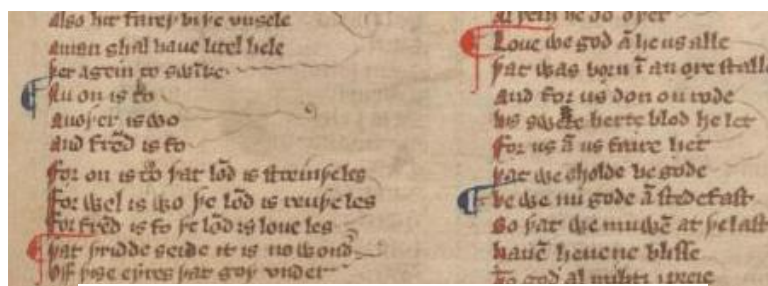 also hit fareþ bi þe unsele
a man shal haue litel hele
þer agein to swike
Nu on is to
anoþer is wo
and frēd is fo
For on is to þat lōd is streinþeles
For wel is wo þe lōd is reuþeles
For frēd is fo þe lōd is loue les
þat þridde seide it is no wond
Off þise eyres þat goþ vnder
Loue we god ā he us alle
þat was born ī an oxe stalle
And for us don on rode
his swete herte blod he let
For us ā us faire het
þat we sholde be gode
be we nu gode ā stedefast
So þat we muwē at þe last
hauē heuene blisse
To god al mihti